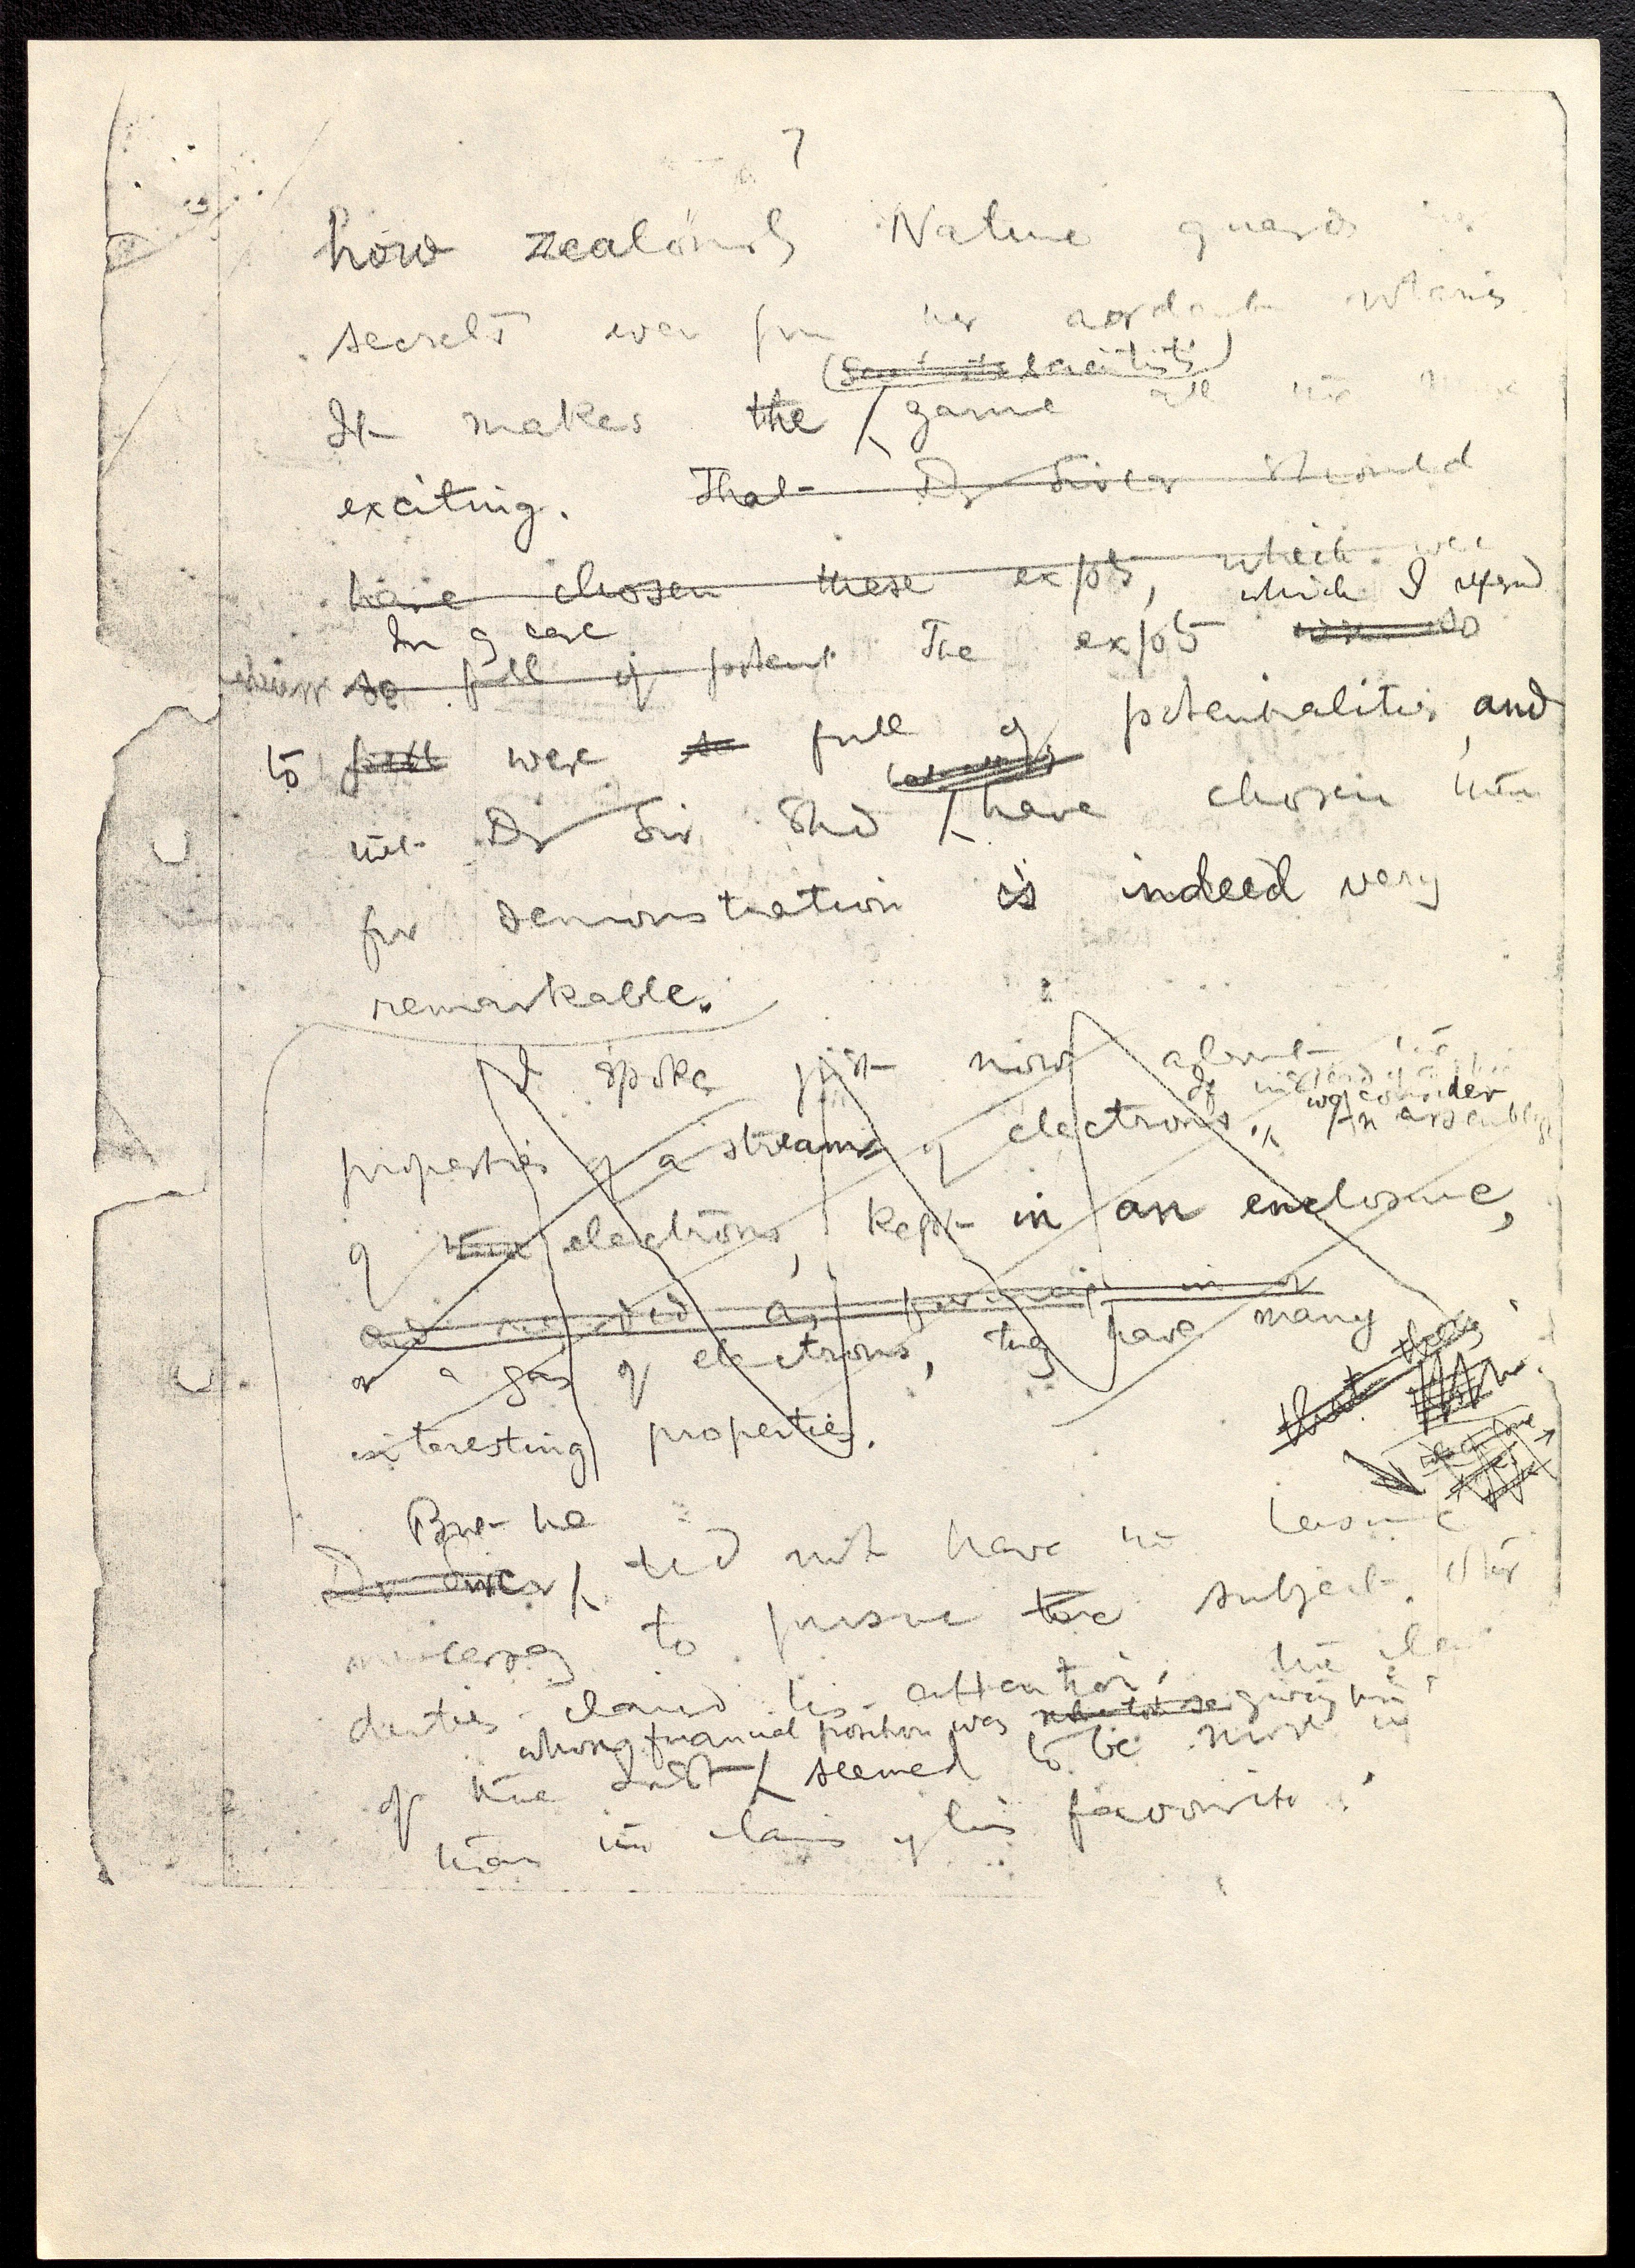 7
how zealously Nature guards her
secrets even from her ardent
(scientists')
It makes the game all the more
exciting. That Dr Sircar should
have chosen these expts, which were
which I referred
In g case
so full of potent The expts so
to full were so full of potentialities, and
that Dr Sir. shd have chosen them
for demonstration is indeed very
remarkable.
I spoke just now about the
If instead of
we consider
properties of a stream of electrons. An assembly
of electrons, kept in an enclosure,
and regarded as in a
or a gas of electrons, they have many
interesting properties.
that
But he
Dr Sircar did not have the leisure
necessary to pursue the subject. Other
duties claimed his attention,
whose financial position was giving him
of the Instn seemed to be more
than the claims of his favourite